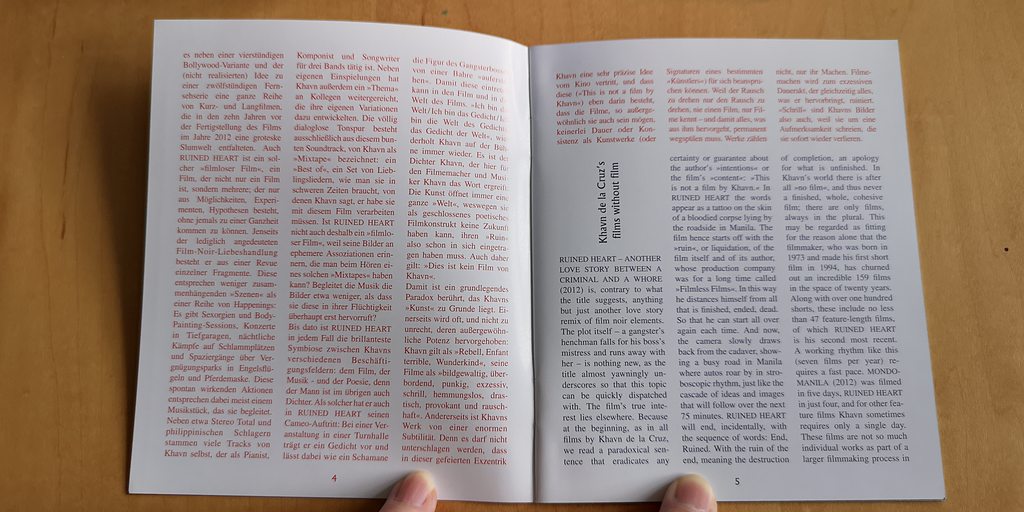 es neben einer vierstündigen
Bollywood-Variante und der
(nicht realisierten) Idee zu
einer zwölfstündigen Fern-
sehserie eine ganze Reihe
von Kurz- und Langfilmen,
die in den zehn Jahren vor
der Fertigstellung des Films
im Jahre 2012 eine groteske
Slumwelt entfalteten. Auch
RUINED HEART ist ein sol-
cher »filmloser Film«, ein
Film, der nicht nur ein Film
ist, sondern mehrere; der nur
aus Möglichkeiten, Experi-
menten, Hypothesen besteht,
ohne jemals zu einer Ganzheit
kommen zu können. Jenseits
der lediglich angedeuteten
Film-Noir-Liebeshandlung
besteht er aus einer Revue
einzelner Fragmente. Diese
entsprechen weniger zusam-
menhängenden »Szenen« als
einer Reihe von Happenings:
Es gibt Sexorgien und Body-
Painting-Sessions, Konzerte
in Tiefgaragen, nächtliche
Kämpfe auf Schlammplätzen
und Spaziergänge über Ver-
gnügungsparks in Engelsflü-
geln und Pferdemaske. Diese
spontan wirkenden Aktionen
entsprechen dabei meist einem
Musikstück, das sie begleitet.
Neben etwa Stereo Total und
philippinischen Schlagern
stammen viele Tracks von
Khavn selbst, der als Pianist,
Komponist und Songwriter
für drei Bands tätig ist. Neben
eigenen Einspielungen hat
Khavn außerdem ein »Thema«
an Kollegen weitergereicht,
die ihre eigenen Variationen
dazu entwickelten. Die völlig
dialoglose Tonspur besteht
ausschließlich aus diesem bun-
ten Soundtrack, von Khavn als
»Mixtape« bezeichnet: ein
»Best of«, ein Set von Lieb-
lingsliedern, wie man sie in
schweren Zeiten braucht, von
denen Khavn sagt, er habe sie
mit diesem Film verarbeiten
müssen. Ist RUINED HEART
nicht auch deshalb ein »filmlo-
ser Film«, weil seine Bilder an
ephemere Assoziationen erin-
nern, die man beim Hören ei-
nes solchen »Mixtapes« haben
kann? Begleitet die Musik die
Bilder etwa weniger, als dass
sie diese in ihrer Flüchtigkeit
überhaupt erst hervorruft?
Bis dato ist RUINED HEART
in jedem Fall die brillanteste
Symbiose zwischen Khavns
verschiedenen Beschäfti-
gungsfeldern: dem Film, der
Musik - und der Poesie, denn
der Mann ist im übrigen auch
Dichter. Als solcher hat er auch
in RUINED HEART seinen
Cameo-Auftritt: Bei einer Ver-
anstaltung in einer Turnhalle
trägt er ein Gedicht vor und
lässt dabei wie ein Schamane
die Figur des Gangsterbosses
von einer Bahre »aufersteh
hen«. Damit diese eintre
kann in den Film und in d
Welt des Films. »Ich bin d
Welt/Ich bin das Gedicht/I
bin die Welt des Gedichts
das Gedicht der Welt«, wie
derholt Khavn auf der Büh
ne immer wieder. Es ist de
Dichter Khavn, der hier fü
den Filmemacher und Musi
ker Khavn das Wort ergreift.
Die Kunst öffnet immer eine
ganze »Welt«, weswegen sie
als geschlossenes poetisches
Filmkonstrukt keine Zukunft
haben kann, ihren »Ruin«
also schon in sich eingetra-
gen haben muss. Auch daher
gilt: »Dies ist kein Film von
Khavn«.
Damit ist ein grundlegendes
Paradox berührt, das Khavns
»Kunst« zu Grunde liegt. Ei-
nerseits wird oft, und nicht zu
unrecht, deren außergewöhn-
liche Potenz hervorgehoben:
Khavn gilt als »Rebell, Enfant
terrible, Wunderkind«, seine
Filme als »bildgewaltig, über-
bordend, punkig, exzessiv,
schrill, hemmungslos, dras-
tisch, provokant und rausch-
haft«. Andererseits ist Khavns
Werk von einer enormen
Subtilität. Denn es darf nicht
unterschlagen werden, dass
in dieser gefeierten Exzentrik
4
Khavn eine sehr präzise Idee
vom Kino vertritt, und dass
diese (»This is not a film by
Khavn«) eben darin besteht,
dass die Filme, so außerge-
wöhnlich sie auch sein mögen,
keinerlei Dauer oder Kon-
sistenz als Kunstwerke (oder
Signaturen eines bestimmten
»Künstlers«) für sich beanspru-
chen können. Weil der Rausch
zu drehen nur den Rausch zu
drehen, sie einen Film, nur Fil-
me kennt – und damit alles, was
aus ihm hervorgeht, permanent
wegspülen muss. Werke zählen
nicht, nur ihr Machen. Filme-
machen wird zum exzessiven
Dauerakt, der gleichzeitig alles,
was er hervorbringt, ruiniert.
»Schrill« sind Khavns Bilder
also auch, weil sie um eine
Aufmerksamkeit schreien, die
sie sofort wieder verlieren.
Khavn de la Cruz's
films without film
RUINED HEART – ANOTHER
LOVE STORY BETWEEN A
CRIMINAL AND A WHORE
(2012) is, contrary to what
the title suggests, anything
but just another love story
remix of film noir elements.
The plot itself – a gangster's
henchman falls for his boss's
mistress and runs away with
her – is nothing new, as the
title almost yawningly un-
derscores so that this topic
can be quickly dispatched
with. The film's true inte-
rest lies elsewhere. Because
at the beginning, as in all
films by Khavn de la Cruz,
we read a paradoxical sen-
tence that eradicates any
certainty or guarantee about
the author's »intentions« or
the film's »content«: »This
is not a film by Khavn.« In
RUINED HEART the words
appear as a tattoo on the skin
of a bloodied corpse lying by
the roadside in Manila. The
film hence starts off with the
»ruin«, or liquidation, of the
film itself and of its author,
whose production company
was for a long time called
»Filmless Films«. In this way
he distances himself from all
that is finished, ended, dead.
So that he can start all over
again each time. And now,
the camera slowly draws
back from the cadaver, show-
ing a busy road in Manila
where autos roar by in stro-
boscopic rhythm, just like the
cascade of ideas and images
that will follow over the next
75 minutes. RUINED HEART
will end, incidentally, with
the sequence of words: End,
Ruined. With the ruin of the
end, meaning the destruction
of completion, an apology
for what is unfinished. In
Khavn's world there is after
all »no film«, and thus never
a finished, whole, cohesive
film; there are only films,
always in the plural. This
may be regarded as fitting
for the reason alone that the
filmmaker, who was born in
1973 and made his first short
film in 1994, has churned
out an incredible 159 films
in the space of twenty years.
Along with over one hundred
shorts, these include no less
than 47 feature-length films,
of which RUINED HEART
is his second most recent.
A working rhythm like this
(seven films per year) re-
quires a fast pace. MONDO-
MANILA (2012) was filmed
in five days, RUINED HEART
in just four, and for other fea-
ture films Khavn sometimes
requires only a single day.
These films are not so much
individual works as part of a
larger filmmaking process in
5